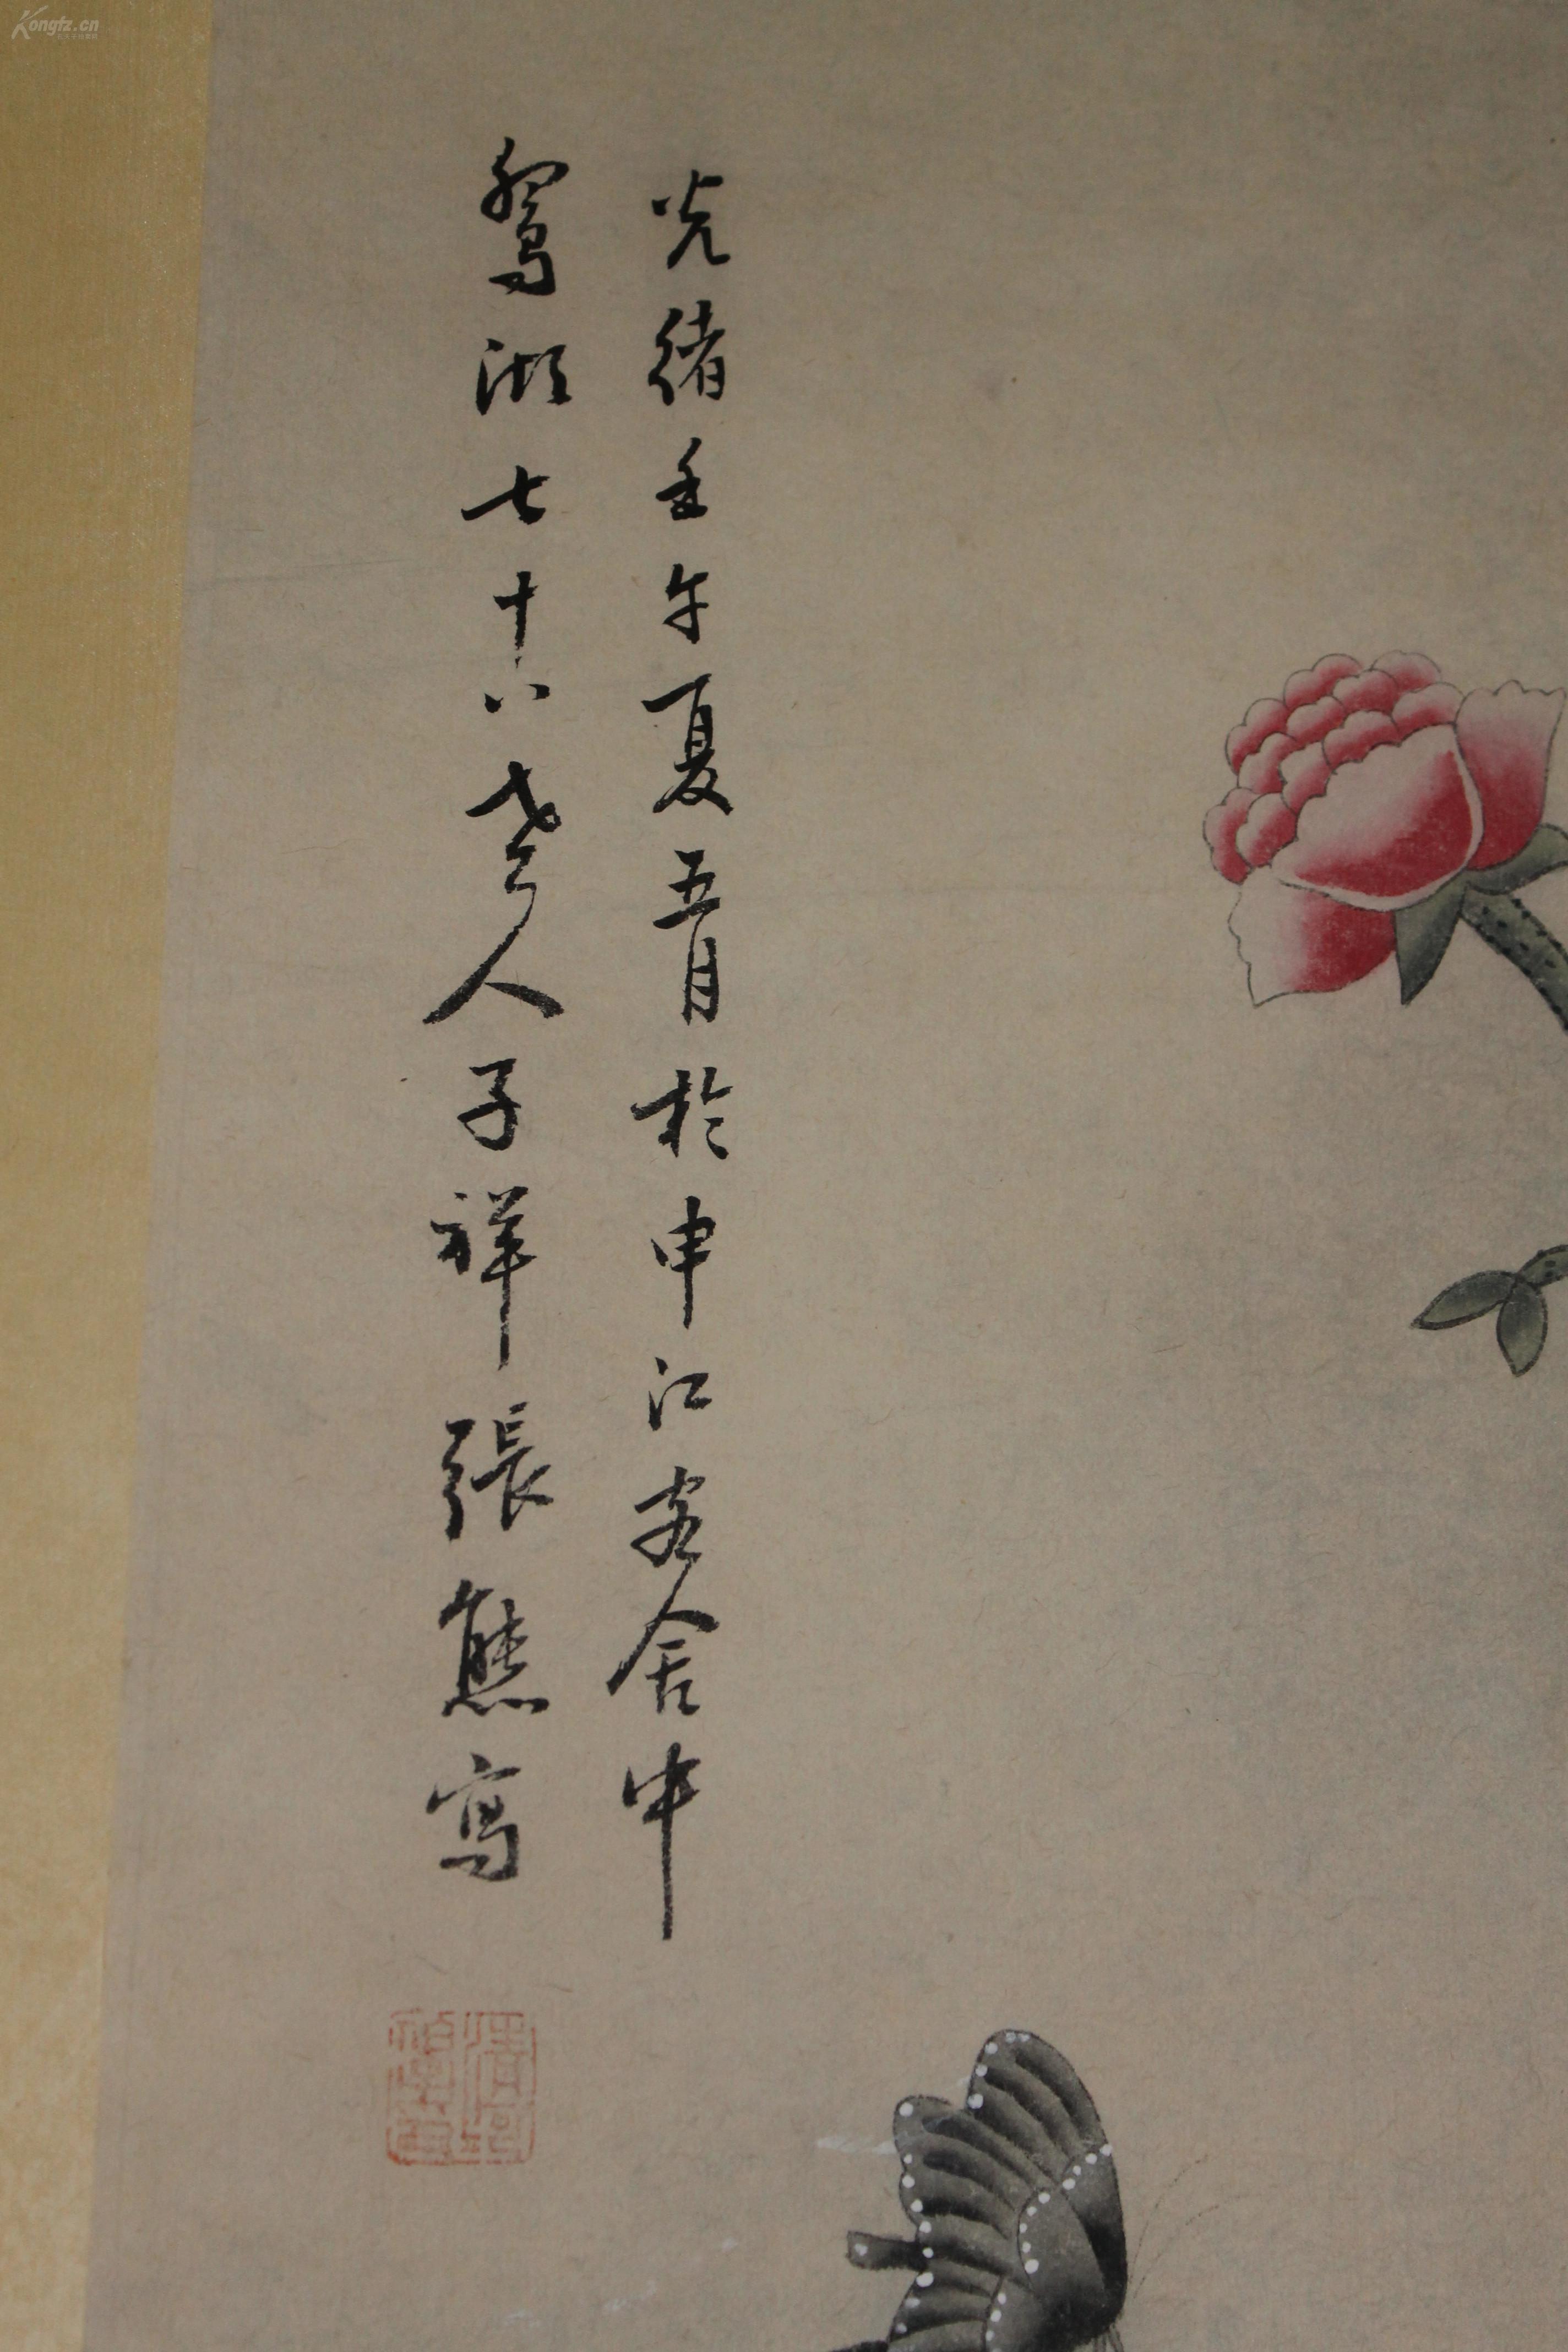 Kongfz.cn
光緒壬午夏五月於申江客舍中
鴛湖七十八老人子祥張熊寫